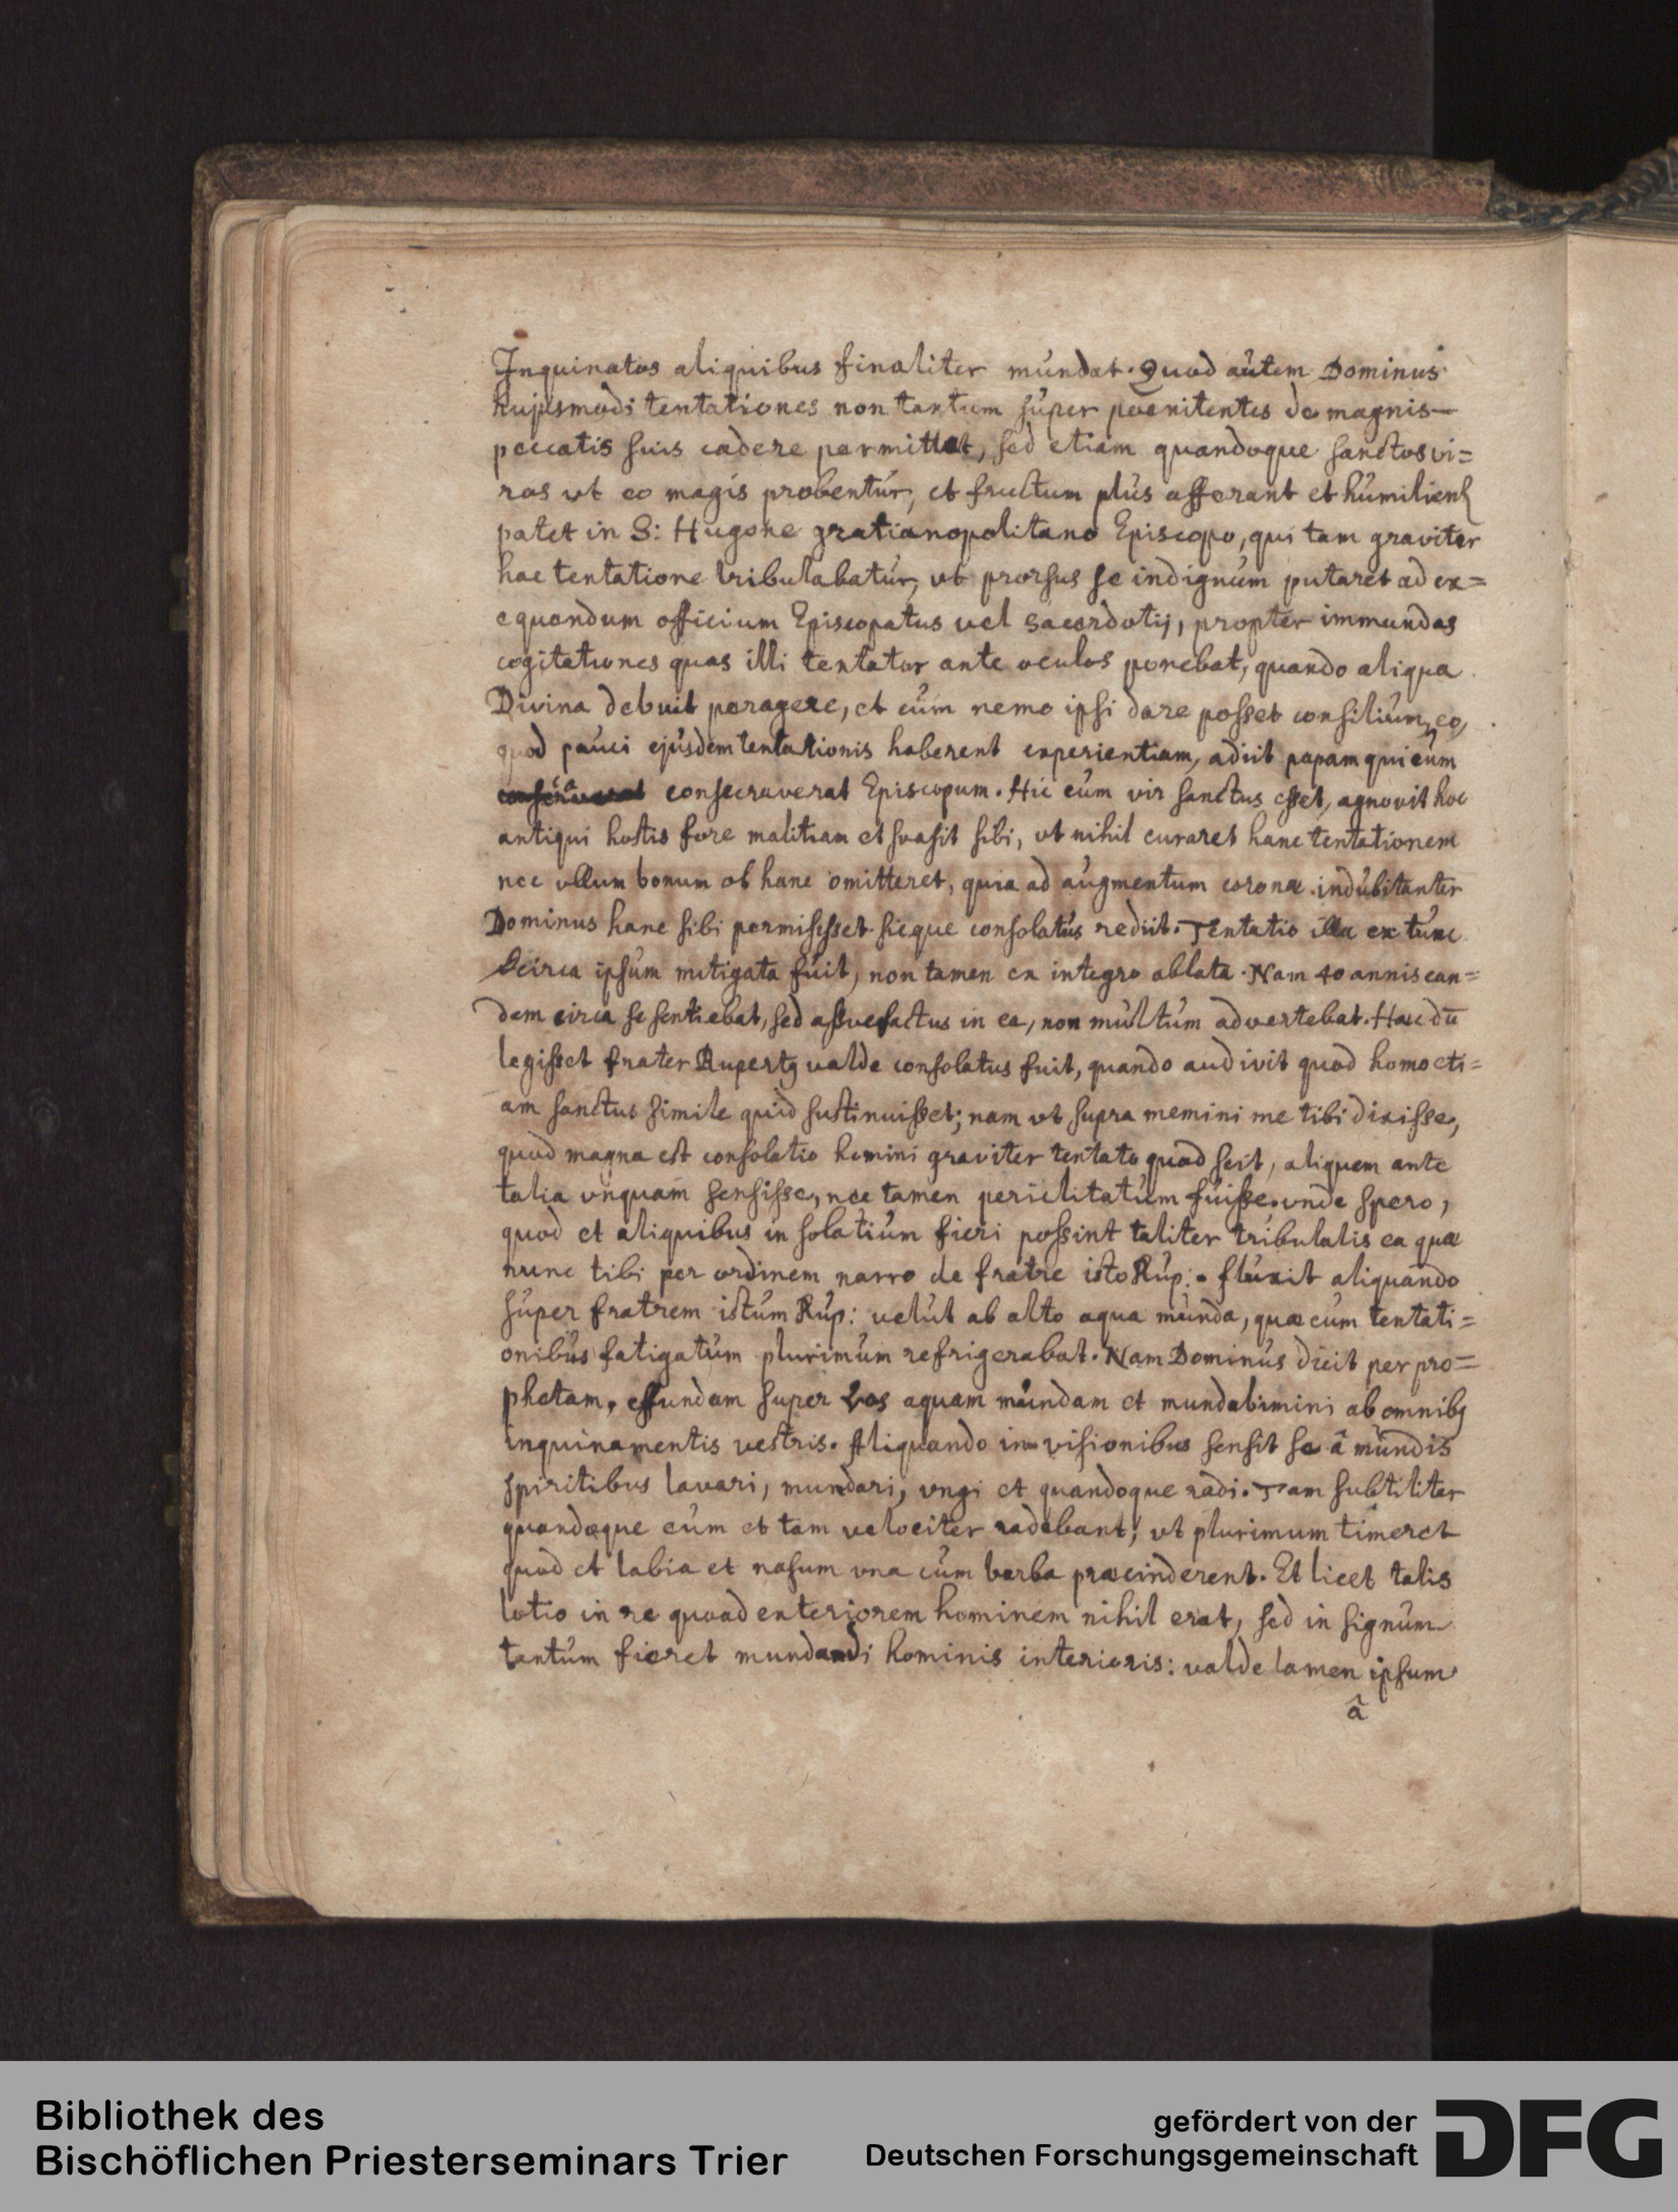 Inquinatos aliquibus finaliter mundat. Quod autem Dominus
hujusmodi tentationes non tantum super poenitentes de magnis
peccatis suis cadere permittat, sed etiam quandoque sanctos vi=
ros ut eo magis probentur, et fructum plus afferant et humilient
patet in S: Hugone gratianopolitano Episcopo, qui tam graviter
hac tentatione tribulabatur, vt prorsus se indignum putaret ad ex=
equendum officium Episcopatus vel sacerdotij, propter immundas
cogitationes quas illi tentator ante oculos ponebat, quando aliqua
Divina debuit peragere, et cum nemo ipsi dare posset consilium, eo,
quod pauci ejusdem tentationis haberent experientiam, adiit papam qui eum
consecraverat Episcopum. Hic cum vir sanctus esset, agnovit hoc
antiqui hostis fore malitiam et svasit sibi, vt nihil curaret hanc tentationem
nec vllum bonum ob hanc omitteret, quia ad augmentum coronæ indubitanter
Dominus hanc sibi permisisset. sicque consolatus rediit. Tentatio illa ex tunc
circa ipsum mitigata fuit, non tamen ex integro ablata. Nam 40 annis ean=
dem circa se sentiebat, sed assvefactus in ea, non multum advertebat. Hæc dū
legisset frater Rupertg valde consolatus fuit, quando audivit quod homo eti=
am sanctus simile quid sustinuisset; nam vt supra memini me tibi dixisse,
quod magna est consolatio homini graviter tentato quod scit, aliquem ante
talia vnquam sensisse, nec tamen periclitatum fuisse. vnde spero,
quod et aliquibus in solatium fieri possint taliter tribulatis ea quæ
nunc tibi per ordinem narro de fratre isto Rup:. fluxit aliquando
super fratrem istum Rup: velut ab alto aqua munda, quæ eum tentati=
onibus fatigatum plurimum refrigerabat. Nam Dominus dicit per pro=
phetam, effundam super vos aquam mundam et mundabimini ab omnibg
inquinamentis vestris. Aliquando in visionibus sensit se â mundis
spiritibus lavari, mundari, vngi et quandoque radi. Tam subtiliter
quandoque eum et tam velociter radebant; vt plurimum timeret
quod et labia et nasum vna cum barba præcinderent. Et licet talis
lotio in re quoad exteriorem hominem nihil erat, sed in signum
tantum fieret mundandi hominis interioris: valde tamen ipsum
â
Bibliothek des
Bischöflichen Priesterseminars Trier
gefördert von der
Deutschen Forschungsgemeinschaft
DFG